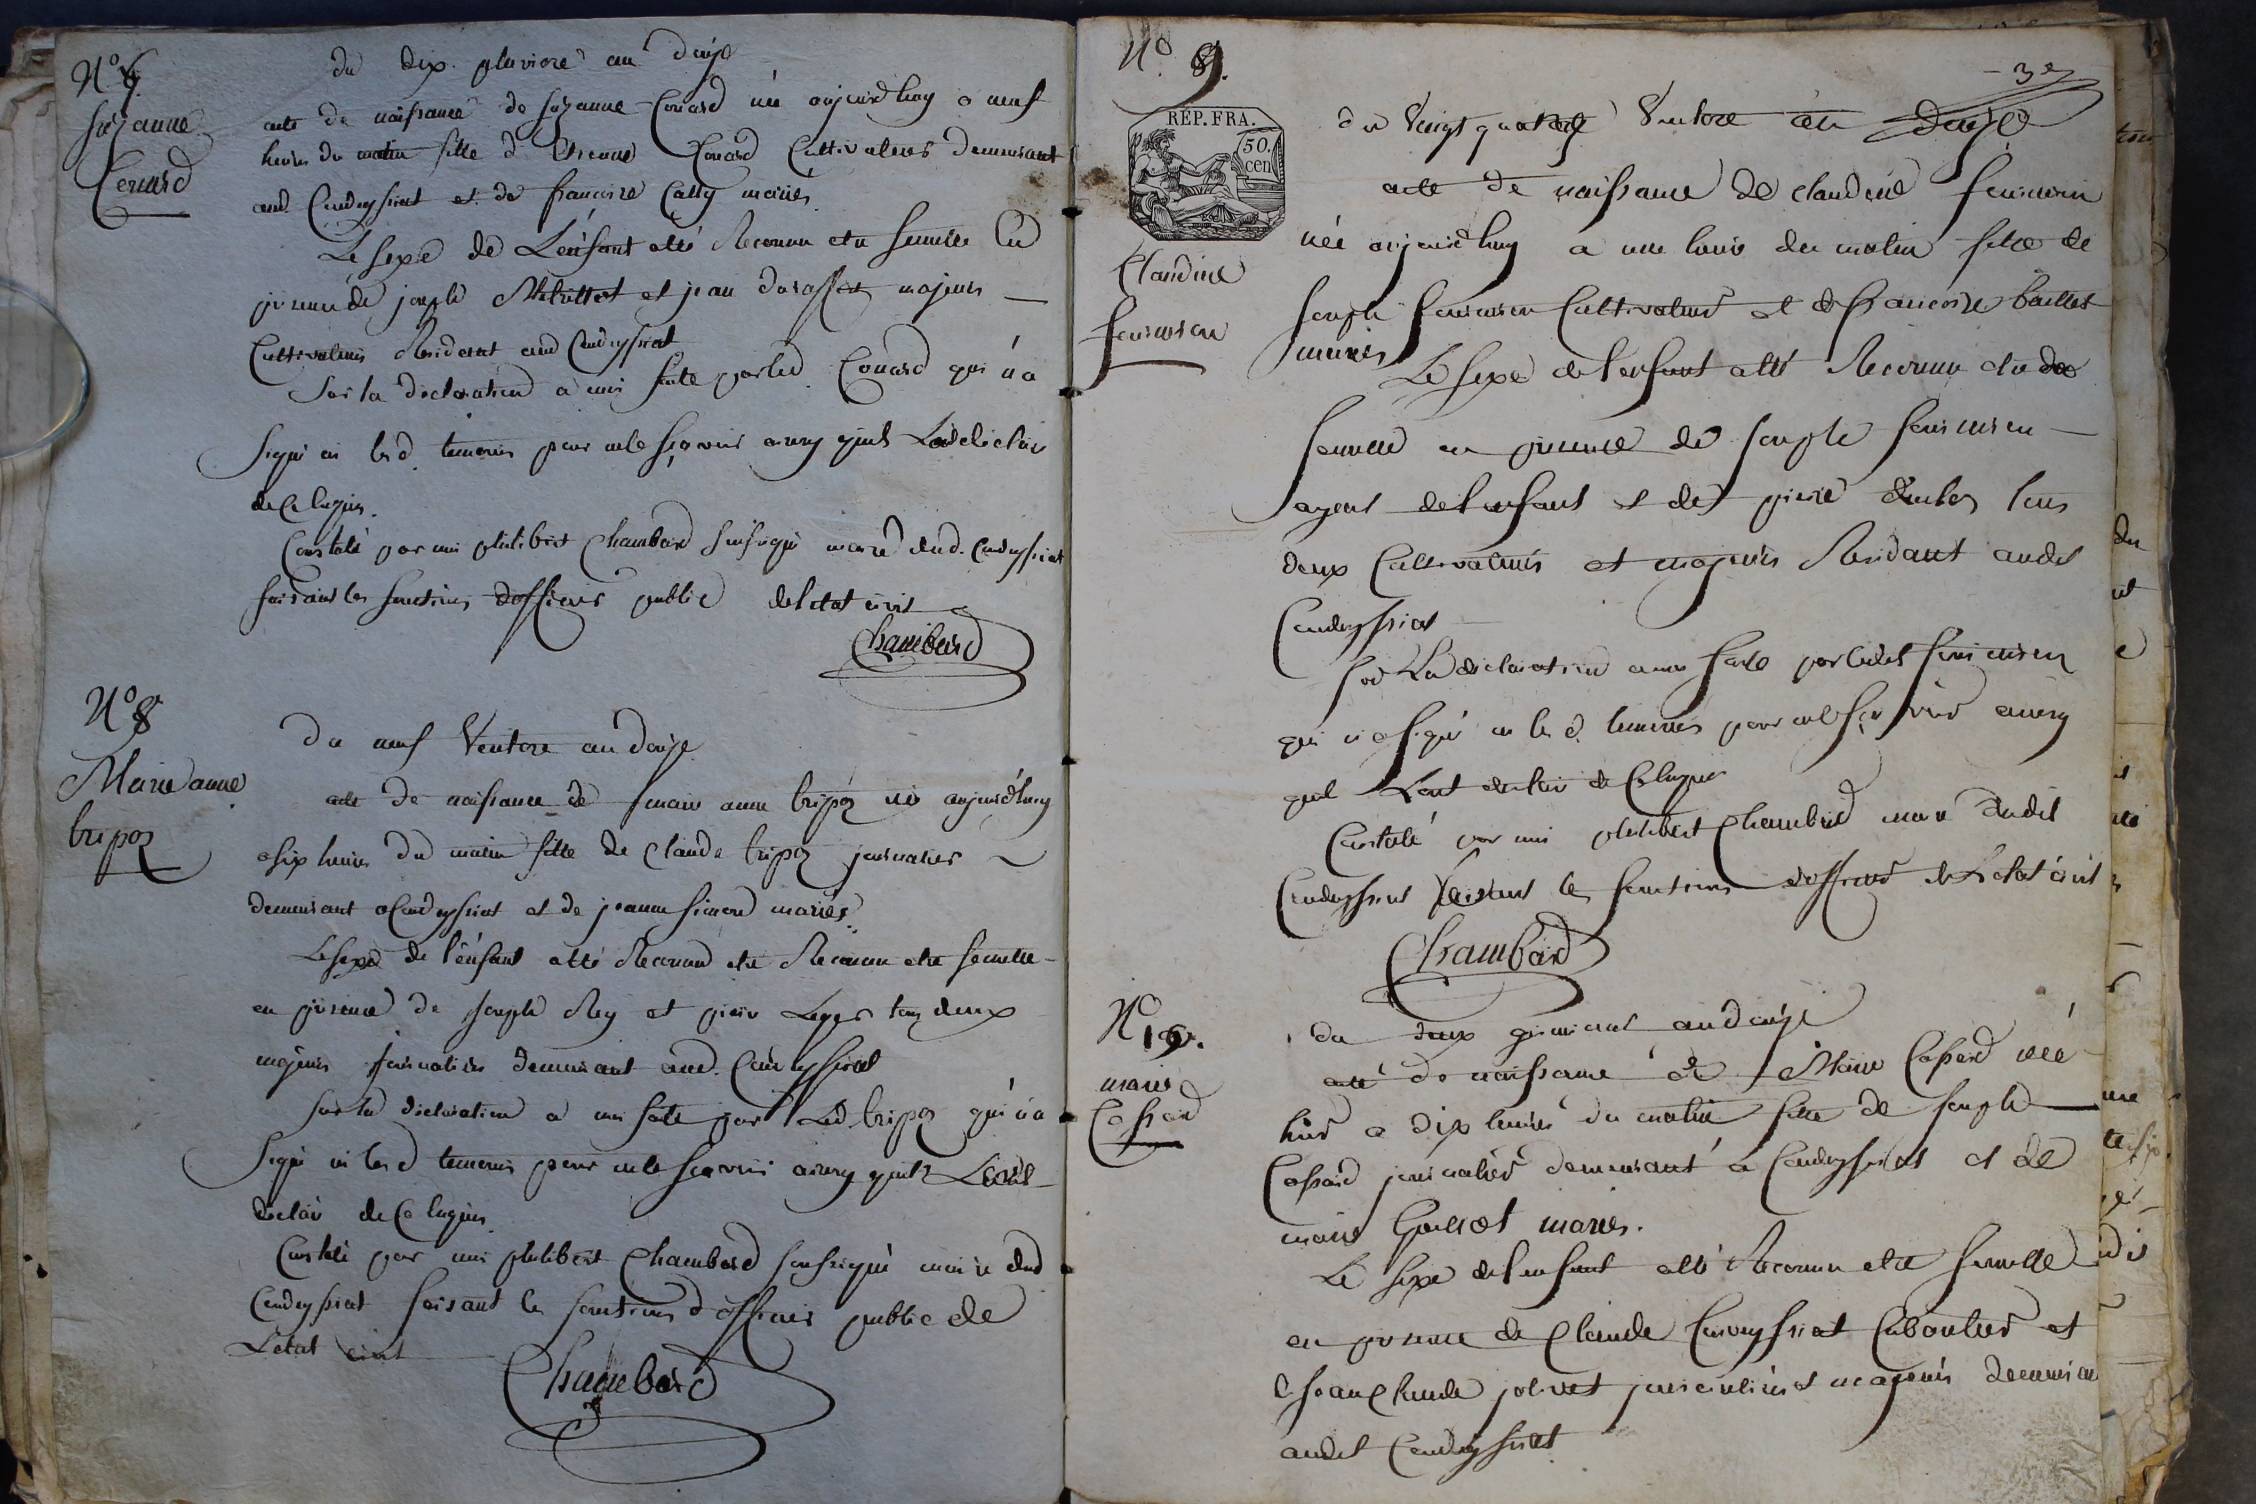 du dix pluviose an douze
N°
Suzanne
Couard
acte de naissance de Suzanne Couard née aujourd'huy a neuf
heures du matin fille d' Etienne Couard Cultivateur demeurant
aud. Condeyssiat et de francoise Catty mariés.
Le sexe de L'enfant a été Reconnu etre femelle En
présence de joseph et jean majeurs
Cultivateurs Residant aud Condeyssiat
Sur la declaration a moi faite par led Couard qui n'a
signé ni les d. temoins pour ne le sçavoir ainsy quils L'ont declaré
de Ce Enquis.
Constaté par moi philibert Chambard soussigné maire dud. Condeyssiat
faisant les fonctions d'officier public de letat civil
Chambard
N° 8
Marie anne
tripoz
du neuf Ventose an douze
acte de naissance de marie anne tripoz née aujourd'huy
a six heures du matin fille de Claude tripoz journalier
demeurant a Condeyssiat et de jeanne Simond mariés.
Le sexe de l'enfant a été Reconnu etre Reconnu etre femelle
en présence de joseph Rey et pierre Leger tous deux
majeurs journaliers demeurant aud. Condeyssiat
Sur la declaration a moi faite par Led tripoz qui n'a
signé ni les d temoins pour ne le scavoir ainsy quils L'ont
declaré de Ce Enquis.
Constaté par moi philibert Chambard soussigné maire dud
Condeyssiat faisant les fonctions d'officier public de
L'etat civil
Chambard
N° 9.
3e
REP. FRA.
50.
cen
Claudine
du Vingt quatre Ventose an douze
acte de naissance de Claudine
née aujourd'huy a une heure du matin fille de
joseph Cultivateur et de francoise baillet
mariés
Le sexe de l'enfant a été Reconnu etre de
femelle en présence de joseph
ayeul de l'enfant et de pierre tous
deux Cultivateurs et majeurs Residant audit
Condeyssiat
Sur La declaration a moi faite par ledit
qui n'a signé ni les d. temoins pour ne le sçavoir ainsy
quil L'ont declaré de Ce Enquis
Constaté par moi philibert Chambard maire dudit
Condeyssiat faisant les fonctions d'officier de L'etat civil
Chambard
N° 10.
marie
Cassard
du deux germinal an douze
acte de naissance de Marie Cassard née
hier a dix heures du matin fille de joseph
Cassard journalier demeurant a Condeyssiat et de
marie mariés.
Le sexe de l'enfant a été Reconnu etre femelle
en présence de Claude Cabaretier et
de jean Claude jolivet journaliers et majeurs demeurant
audit Condeyssiat